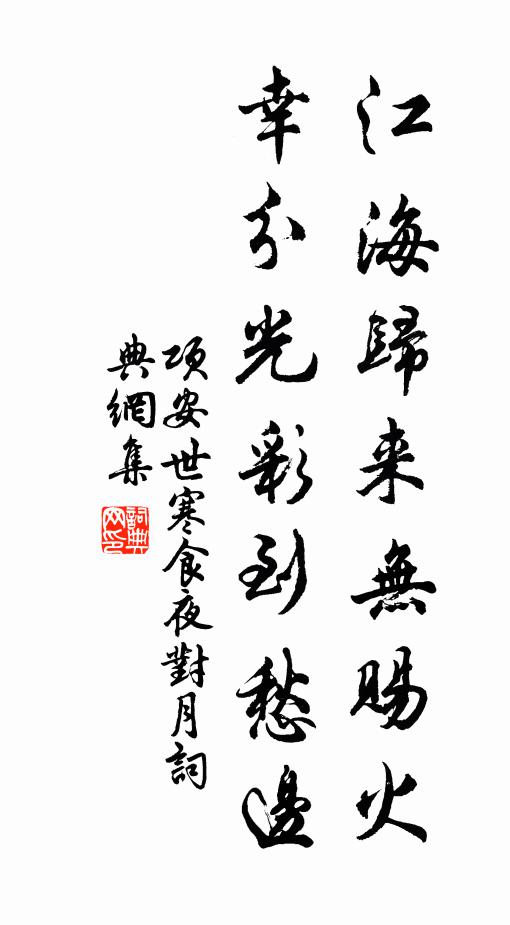 江海歸来無賜火
幸分光彩到愁邊
項安世寒食夜對月詞
典網集
詞典
网印